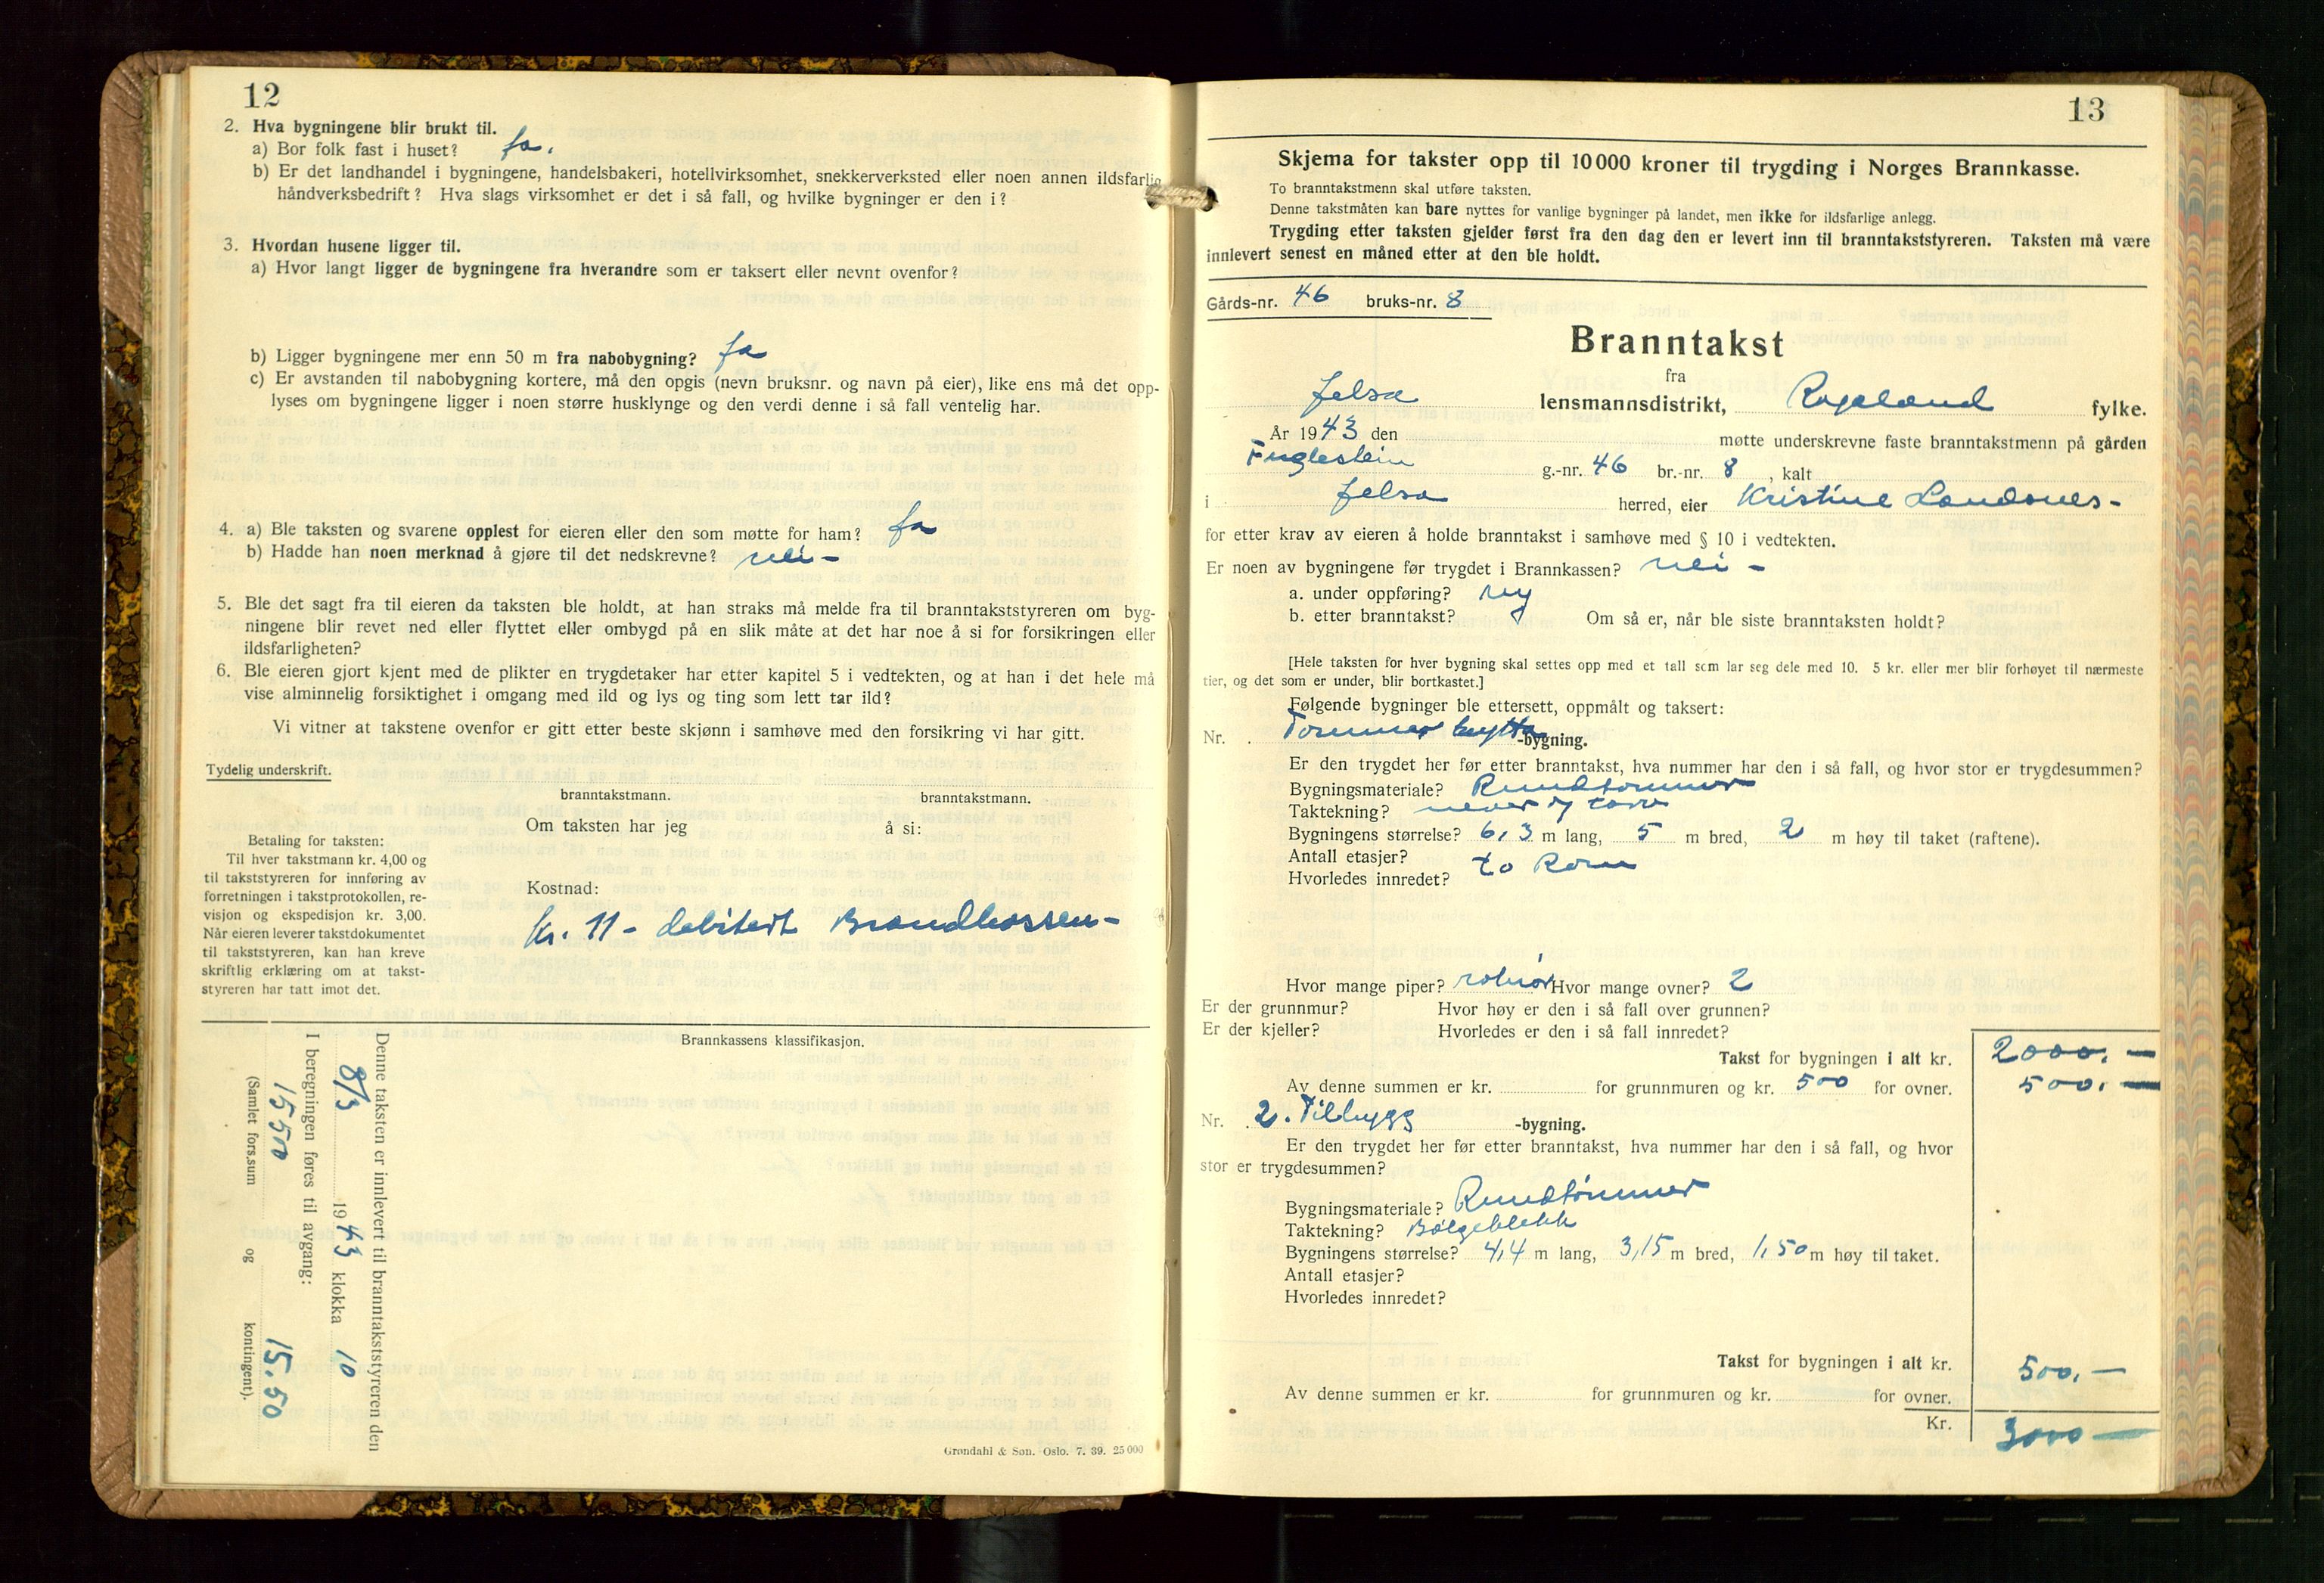 12
2. Hva bygningene blir brukt til.
a) Bor folk fast i huset? ja.
b) Er det landhandel i bygningene, handelsbakeri, hotellvirksomhet, snekkerverksted eller noen annen ildsfarlig
håndverksbedrift? Hva slags virksomhet er det i så fall, og hvilke bygninger er den i?
3. Hvordan husene ligger til.
a) Hvor langt ligger de bygningene fra hverandre som er taksert eller nevnt ovenfor?
b) Ligger bygningene mer enn 50 m fra nabobygning? ja
c) Er avstanden til nabobygning kortere, må den opgis (nevn bruksnr. og navn på eier), like ens må det opp-
lyses om bygningene ligger i noen større husklynge og den verdi denne i så fall ventelig har.
4. a) Ble taksten og svarene opplest for eieren eller den som møtte for ham? ja
b) Hadde han noen merknad å gjøre til det nedskrevne? nei -
5. Ble det sagt fra til eieren da taksten ble holdt, at han straks må melde fra til branntakststyreren om byg-
ningene blir revet ned eller flyttet eller ombygd på en slik måte at det har noe å si for forsikringen eller
ildsfarligheten?
6. Ble eieren gjort kjent med de plikter en trygdetaker har etter kapitel 5 i vedtekten, og at han i det hele må
vise alminnelig forsiktighet i omgang med ild og lys og ting som lett tar ild?
Vi vitner at takstene ovenfor er gitt etter beste skjønn i samhøve med den forsikring vi har gitt.
Tydelig underskrift.
branntakstmann. branntakstmann.
Om taksten har jeg å si:
Betaling for taksten:
Til hver takstmann kr. 4,00 og
til takststyreren for innføring av
forretningen i takstprotokollen, re-
visjon og ekspedisjon kr. 3,00.
Når eieren leverer takstdokumentet
til takststyreren, kan han kreve
skriftlig erklæring om at takst-
styreren har tatt imot det.
Kostnad:
Kr. 11 - debitert Brandkassen -
Brannkassens klassifikasjon.
Denne taksten er innlevert til branntakststyreren den
8/3 1943 klokka 10
I beregningen føres til avgang:
1550 15.50
(Samlet fors.sum og kontingent).
Grøndahl & Søn. Oslo. 7. 39. 25 000
13
Skjema for takster opp til 10 000 kroner til trygding i Norges Brannkasse.
To branntakstmenn skal utføre taksten.
Denne takstmåten kan bare nyttes for vanlige bygninger på landet, men ikke for ildsfarlige anlegg.
Trygding etter taksten gjelder først fra den dag den er levert inn til branntakststyreren. Taksten må være
innlevert senest en måned etter at den ble holdt.
Gårds-nr. 46 bruks-nr. 8
Branntakst
fra
Jelsa lensmannsdistrikt, Rogaland fylke.
År 1943 den møtte underskrevne faste branntakstmenn på gården
Fuglestein g.-nr. 46 br.-nr. 8, kalt
i Jelsa herred, eier Kristine Landsnes -
for etter krav av eieren å holde branntakst i samhøve med § 10 i vedtekten.
Er noen av bygningene før trygdet i Brannkassen? nei -
a. under oppføring? ny
b. etter branntakst? Om så er, når ble siste branntaksten holdt?
[Hele taksten for hver bygning skal settes opp med et tall som lar seg dele med 10. 5 kr. eller mer blir forhøyet til nærmeste
tier, og det som er under, blir bortkastet.]
Følgende bygninger ble ettersett, oppmålt og taksert:
Nr. . Tømmerhytta -bygning.
Er den trygdet her før etter branntakst, hva nummer har den i så fall, og hvor stor er trygdesummen?
Bygningsmateriale? Rundtømmer
Taktekning? never og torv
Bygningens størrelse? 6,3 m lang, 5 m bred, 2 m høy til taket (raftene).
Antall etasjer?
Hvorledes innredet? to Rom
Hvor mange piper? Hvor mange ovner? 2
Er der grunnmur? Hvor høy er den i så fall over grunnen?
Er der kjeller? Hvorledes er den i så fall innredet?
Takst for bygningen i alt kr. 2000. —
Av denne summen er kr. for grunnmuren og kr. 500 for ovner. 500. —
Nr. . 2. Tilbygg -bygning.
Er den trygdet her før etter branntakst, hva nummer har den i så fall, og hvor
stor er trygdesummen?
Bygningsmateriale? Rundtømmer
Taktekning? Bølgeblekk
Bygningens størrelse? 4,4 m lang, 3,15 m bred, 1,50 m høy til taket.
Antall etasjer?
Hvorledes innredet?
Takst for bygningen i alt kr. 500. —
Av denne summen er kr. for grunnmuren og kr. for ovner.
Kr. 3000 —